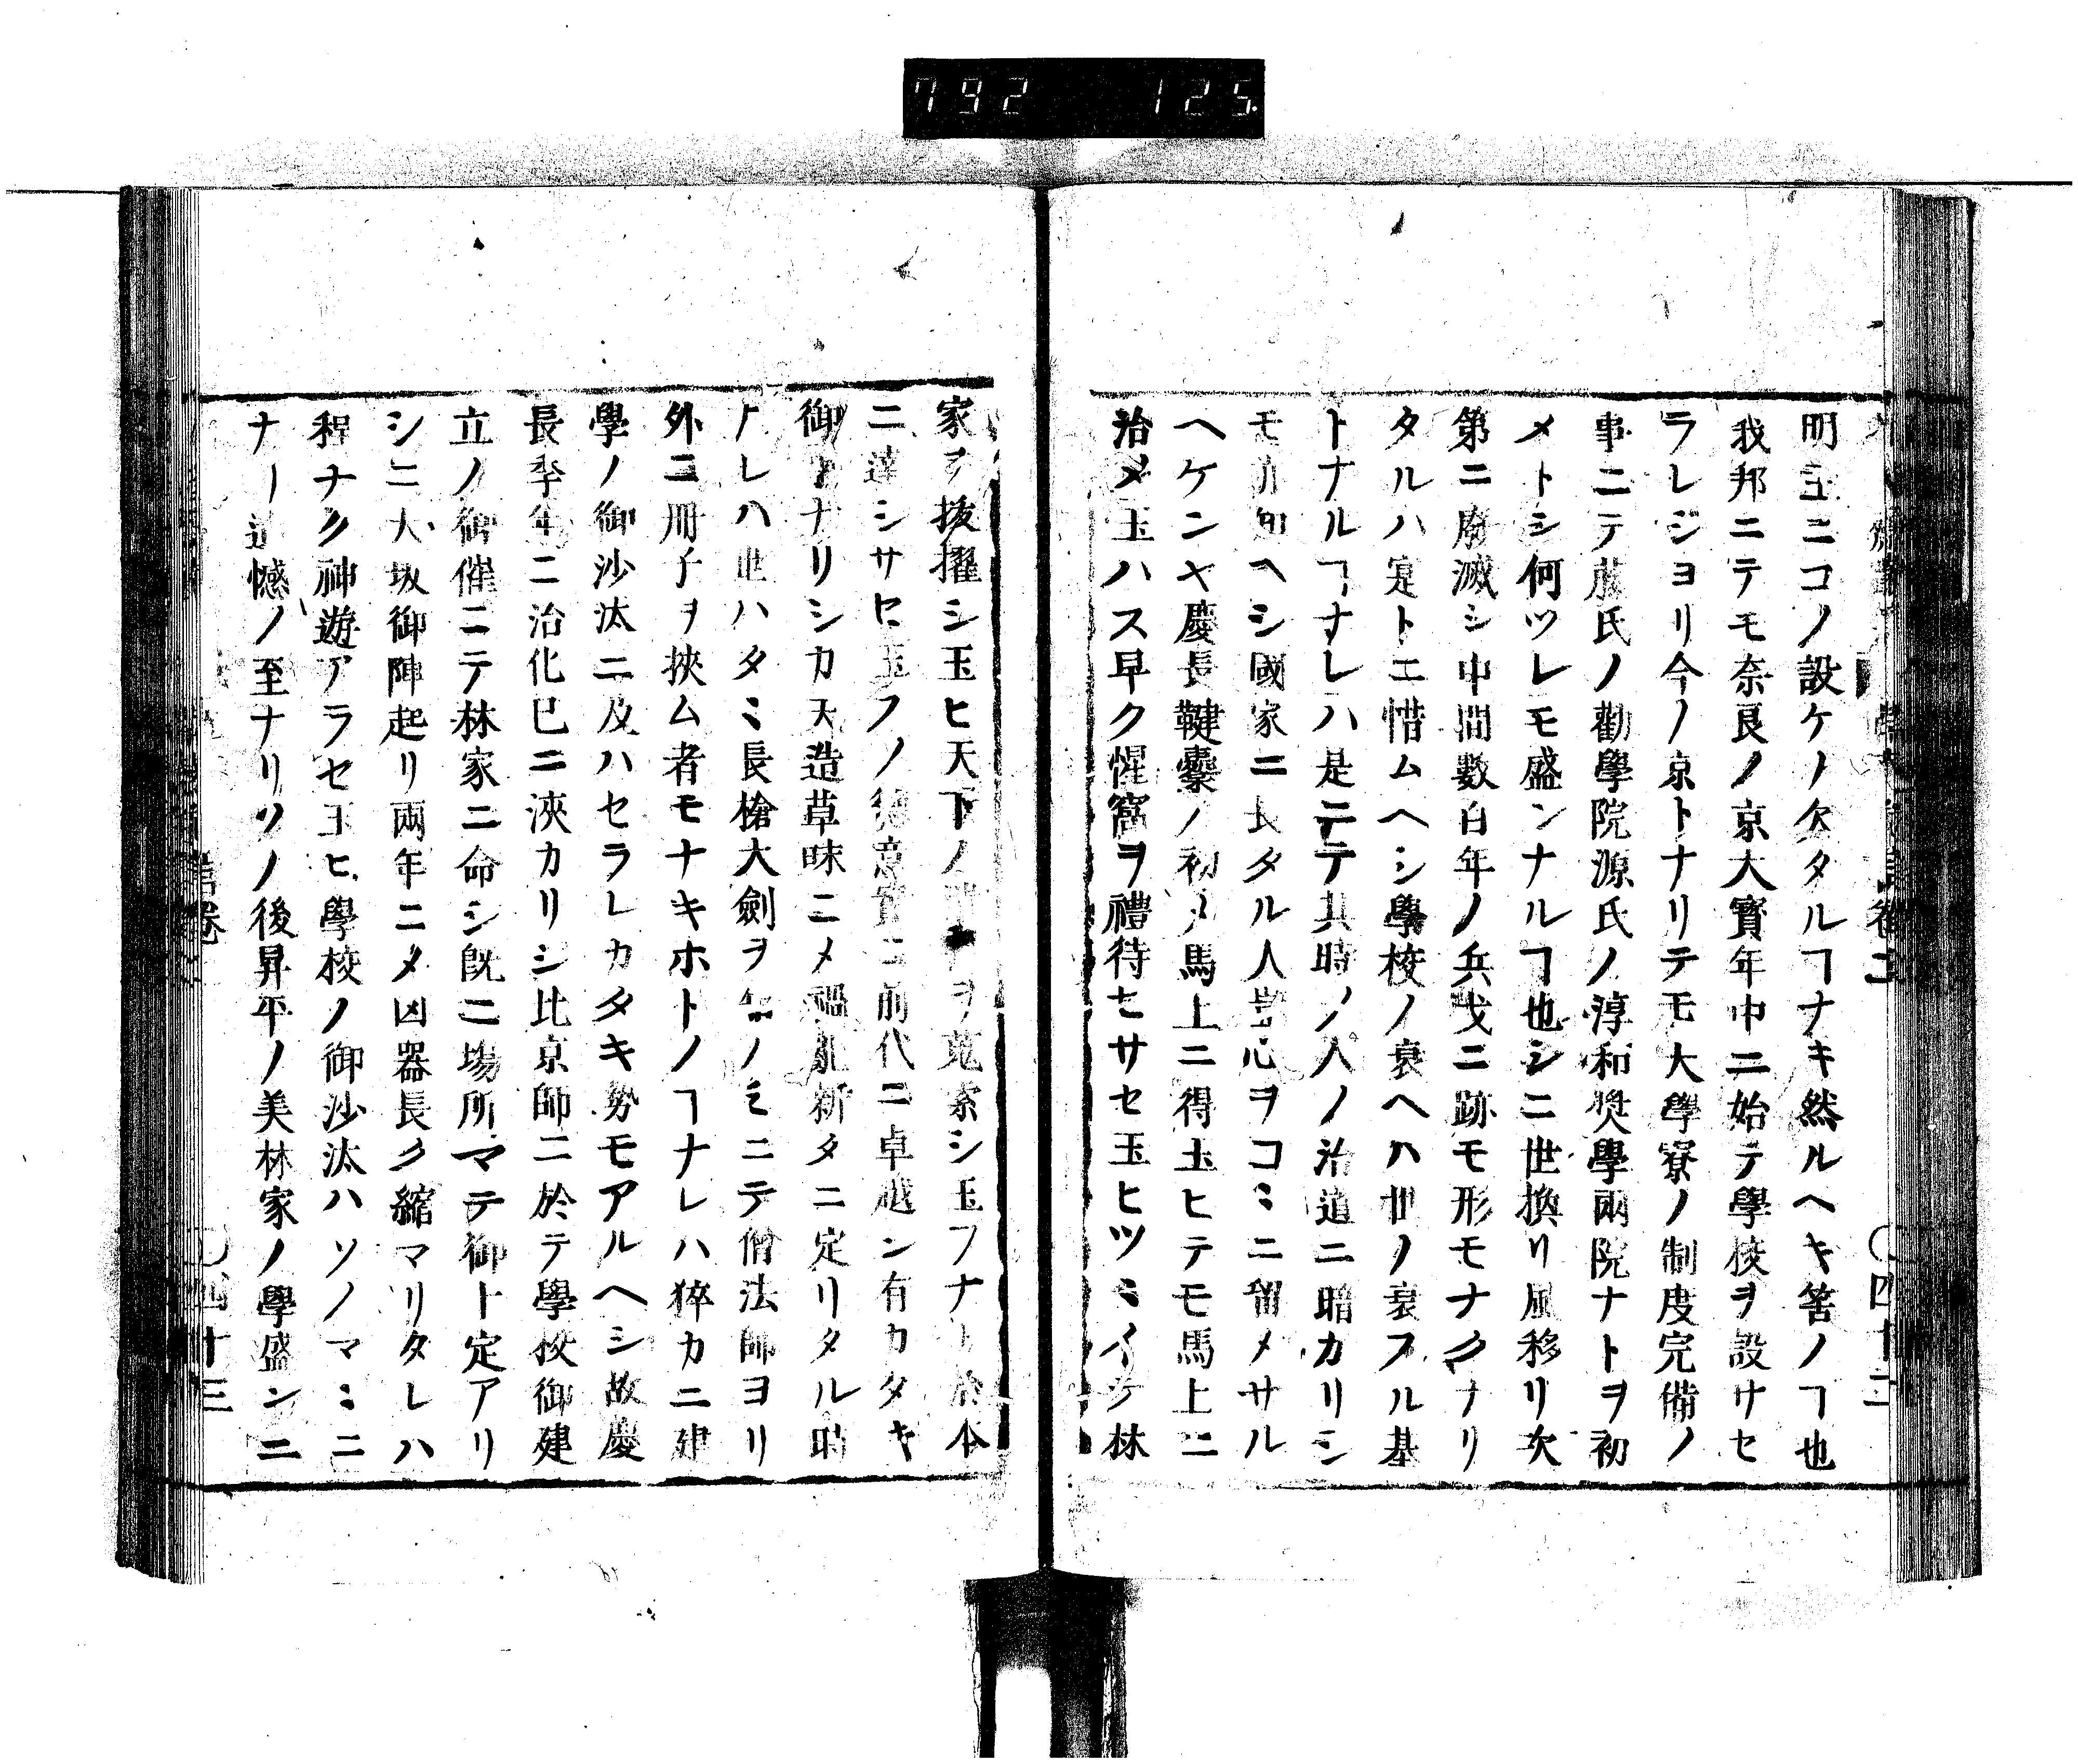 792 125
明主ニコノ設ケノ欠タルヿナキ然ルヘキ筈ノヿ也
我邦ニテモ奈良ノ京大寶年中ニ始テ學校ヲ設ケセ
ラレジヨリ今ノ京トナリテモ大學寮ノ制度完備ノ
事ニテ藤氏ノ勸學院源氏ノ淳和奨學兩院ナトヲ初
メトシ何ツレモ盛ンナルヿ也シニ世換リ風移リ次
第ニ廢滅シ中間數百年ノ兵戈ニ跡モ形モナクナリ
タルハ寔トニ惜ムヘシ學校ノ衰ヘハ世ノ衰フル基
トナルヿナレハ是ニテ其時ノ人ノ治道ニ暗カリシ
モ知ヘシ國家ニ長タル人豈心ヲコヽニ留メサル
ヘケンヤ慶長鞬櫜ノ初メ馬上ニ得玉ヒテモ馬上ニ
治メ玉ハス早ク惺窩ヲ禮待セサセ玉ヒツヽイテ林
家ヲ抜擢シ玉ヒ天下ノヲ蒐索シ玉フナト於本
ニ達シサセ玉フノ御意實ニ前代ニ卓越シ有カタキ
御事ナリシカ天造草昧ニメ禍亂新タニ定リタル時
ナレハ世ハタヽ長槍大劍ヲノミニテ僧法師ヨリ
外ニ冊子ヲ挾ム者モナキホトノヿナレハ猝カニ建
學ノ御沙汰ニ及ハセラレカタキ勢モアルヘシ故慶
長季年ニ治化已ニ浹カリシ比京師ニ於テ學校御建
立ノ御催ニテ林家ニ命シ既ニ塲所マテ御ト定アリ
シニ大坂御陣起リ兩年ニメ凶器長ク縮マリタレハ
程ナク神遊アラセ玉ヒ學校ノ御沙汰ハソノマヽニ
ナリ遺憾ノ至ナリソノ後昇平ノ美林家ノ學盛ンニ
〇四十三